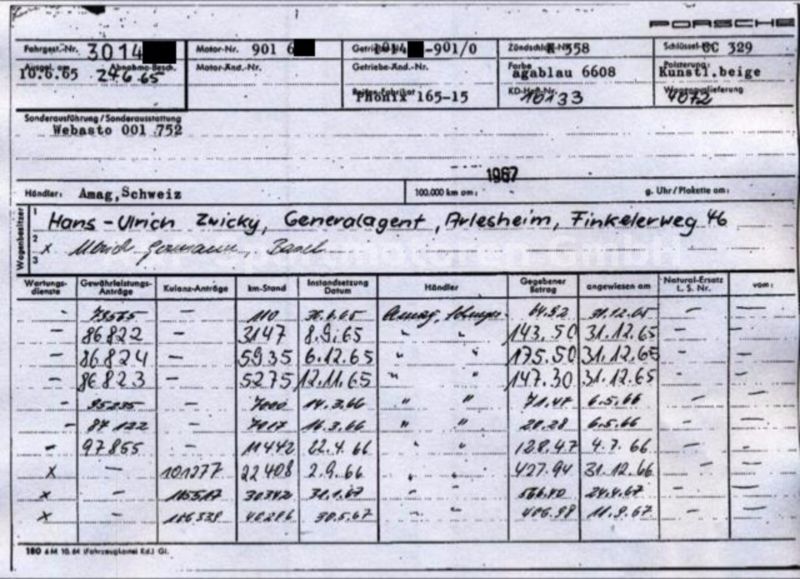 PORSCHE
Fahrgest.-Nr. 3014 Motor-Nr. 901 6 Getriebe-Nr. -901/0 Zündschloß-Nr. 358 Schlüssel-Nr. CC 329
Ausgel. am Abnahme-Besch. Motor-Änd.-Nr. Getriebe-Änd.-Nr. Farbe Polsterung:
10.6.65 24.6.65 agablau 6608 Kunstl.beige
Reifen-Fabrikat KD-Heft-Nr. Wagenauslieferung
Phönix 165-15 10133 4072
Sonderausführung / Sonderausstattung
Webasto 001 752
1967
Händler: Amag,Schweiz 100.000 km am: g. Uhr/Plakette am:
Wagenbesitzer
1 Hans-Ulrich Zwicky, Generalagent, Arlesheim, Finkelerweg 46
2 x Basel
3
Wartungsdienste Gewährleistungs-Anträge Kulanz-Anträge km-Stand Instandsetzung Datum Händler Gegebener Betrag angewiesen am Natural-Ersatz L. S. Nr. vom:
- - 110 Amag, 64.92 - -
- 86822 - 3147 8.9.65 " " 143.50 31.12.65 - -
- 86824 - 5935 6.12.65 " " 175.50 31.12.65 - -
- 86823 - 5275 12.11.65 " " 147.30 31.12.65 - -
- 95235 - 7000 14.3.66 " " 71.47 6.5.66 - -
- 87122 - 7017 16.3.66 " " 20.28 6.5.66 - -
- 97855 - 11442 22.4.66 " " 128.47 4.7.66 - -
x - 101277 22408 2.9.66 " " 427.94 31.12.66 - -
x - 30342 31.1.67 " " 24.4.67 - -
x - 106339 40286 30.5.67 " " 406.98 11.9.67 - -
180 6M 10.64 (Fahrzeugkartei Kd.) Gl.